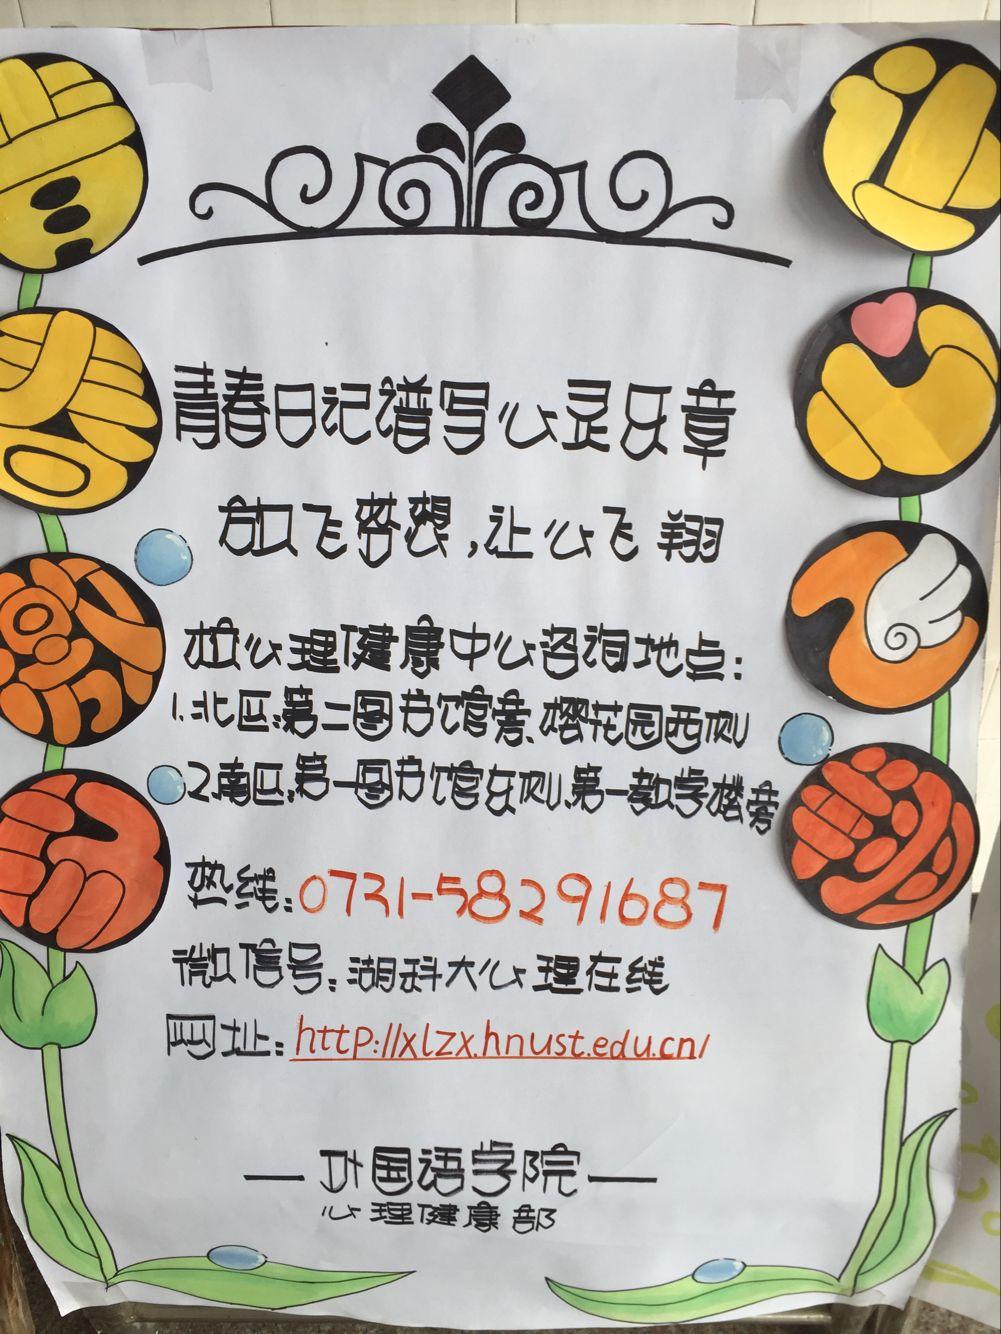 青春日记谱写心灵乐章
放飞梦想,让心飞翔
校心理健康中心咨询地点:
1.北区:第二图书馆旁、樱花园西侧
2.南区:第一图书馆东侧、第一教学楼旁
热线:0731-58291687
微信号:湖科大心理在线
网址:http://xlzx.hnust.edu.cn/
—外国语学院—
心理健康部